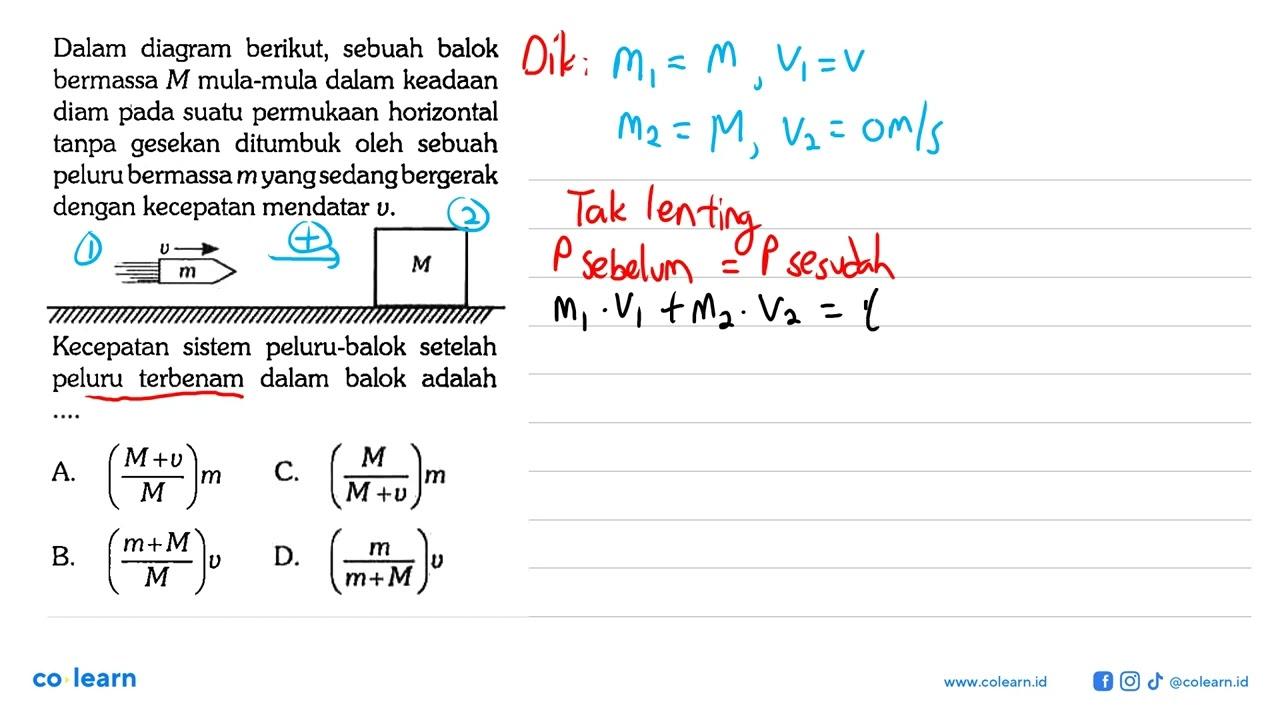 Dalam diagram berikut, sebuah balok
bermassa M mula-mula dalam keadaan
diam pada suatu permukaan horizontal
tanpa gesekan ditumbuk oleh sebuah
peluru bermassa m yang sedang bergerak
dengan kecepatan mendatar υ.
①
υ
m
+
②
M
Kecepatan sistem peluru-balok setelah
peluru terbenam dalam balok adalah
....
A. ((M+υ)/M)m C. (M/(M+υ))m
B. ((m+M)/M)υ D. (m/(m+M))υ
Dik: m₁ = m, v₁ = v
m₂ = M, v₂ = 0 m/s
Tak lenting
P sebelum = P sesudah
m₁ . v₁ + m₂ . v₂ = (
co learn
www.colearn.id
@colearn.id